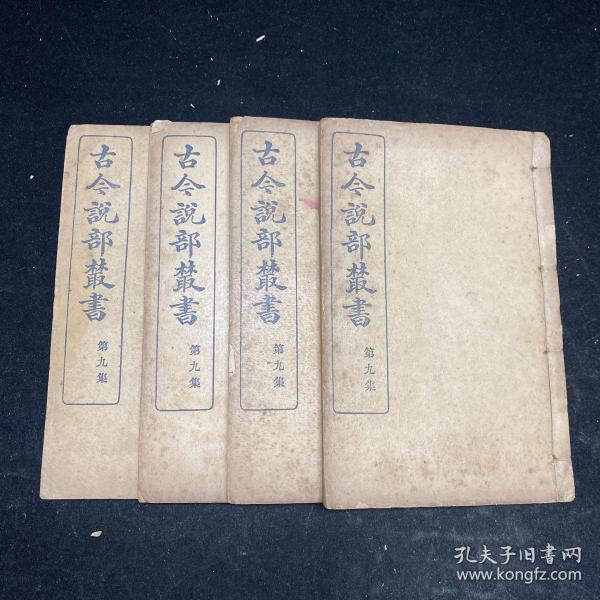 古今說部叢書
第九集
古今說部叢書
第九集
古今說部叢書
第九集
古今說部叢書
第九集
孔夫子旧书网
www.kongfz.com